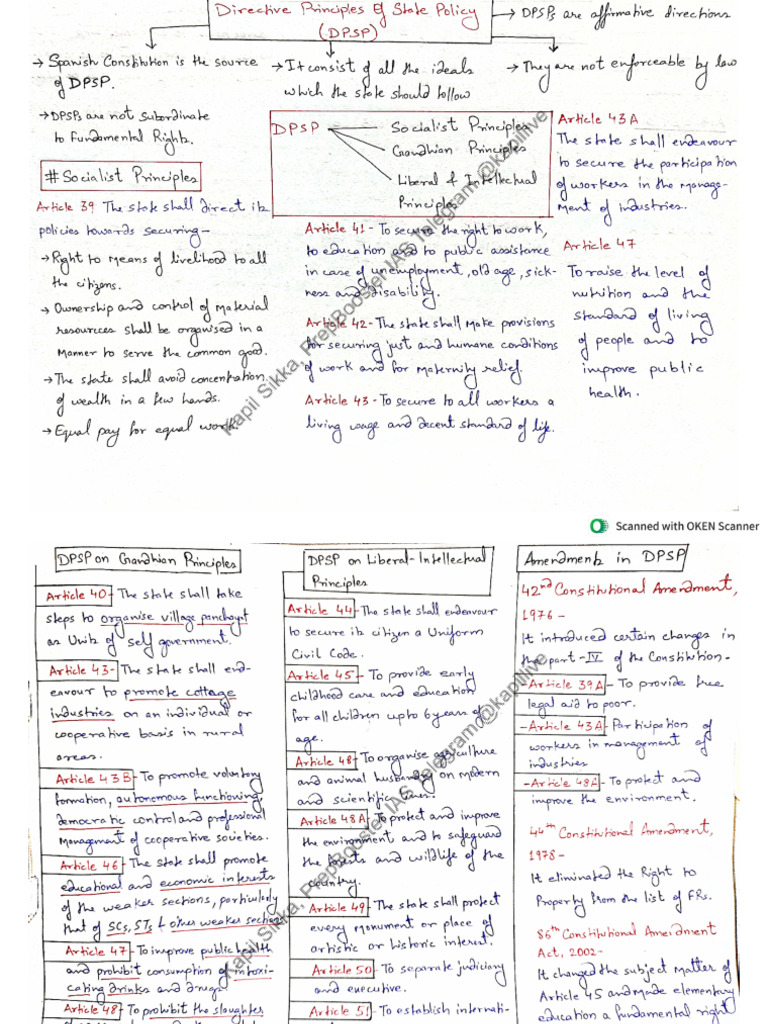 Directive Principles of State Policy
(DPSP)
→ DPSPs are affirmative directions
→ Spanish Constitution is the source
of DPSP.
→ DPSPs are not subordinate
to Fundamental Rights.
→ It consist of all the ideals
which the state should follow
→ They are not enforceable by law
DPSP
Socialist Principles
Gandhian Principles
Liberal & Intellectual
Principles
# Socialist Principles
Article 39 The state shall direct its
policies towards securing -
→ Right to means of livelihood to all
the citizens.
→ Ownership and control of material
resources shall be organised in a
manner to serve the common good.
→ The state shall avoid concentration
of wealth in a few hands.
→ Equal pay for equal work.
Article 41 - To secure the right to work,
to education and to public assistance
in case of unemployment, old age, sick-
ness and disability.
Article 42 - The state shall make provisions
for securing just and humane conditions
of work and for maternity relief.
Article 43 - To secure to all workers a
living wage and decent standard of life.
Article 43 A
The state shall endeavour
to secure the participation
of workers in the manage-
ment of industries.
Article 47
To raise the level of
nutrition and the
standard of living
of people and to
improve public
health.
Kapil Sikka, PrepBooster IAS, Telegram @kapillive
Scanned with OKEN Scanner
DPSP on Gandhian Principles
Article 40 - The state shall take
steps to organise village panchayat
as Units of self government.
Article 43 - The state shall end-
eavour to promote cottage
industries on an individual or
cooperative basis in rural
areas.
Article 43B - To promote voluntary
formation, autonomous functioning,
democratic control and professional
management of cooperative societies.
Article 46 - The state shall promote
educational and economic interests
of the weaker sections, particularly
that of SCs, STs & other weaker sections
Article 47 - To improve public health
and prohibit consumption of intoxi-
cating drinks and drugs
Article 48 - To prohibit the slaughter
DPSP on Liberal-Intellectual
Principles
Article 44 - The state shall endeavour
to secure its citizen a Uniform
Civil Code.
Article 45 - To provide early
childhood care and education
for all children upto 6 years of
age.
Article 48 - To organise agriculture
and animal husbandry on modern
and scientific lines.
Article 48A - To protect and improve
the environment and to safeguard
the forests and wildlife of the
country.
Article 49 - The state shall protect
every monument or place of
artistic or historic interest.
Article 50 - To separate judiciary
and executive.
Article 51 - To establish internati-
Amendments in DPSP
42nd Constitutional Amendment,
1976 -
It introduced certain changes in
the part-IV of the Constitution -
- Article 39A - To provide free
legal aid to poor.
- Article 43A - Participation of
workers in management of
industries
- Article 48A - To protect and
improve the environment.
44th Constitutional Amendment,
1978 -
It eliminated the Right to
Property from the list of FRs.
86th Constitutional Amendment
Act, 2002 -
It changed the subject matter of
Article 45 and made elementary
education a fundamental right
Kapil Sikka, PrepBooster IAS, Telegram @kapillive